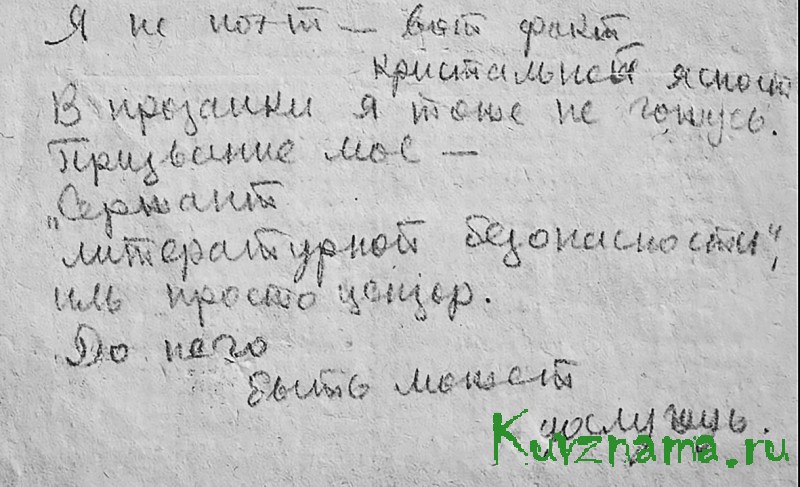 Я не поэт — вот факт
кристальной ясности
В прозаики я тоже не гожусь.
Призвание мое —
„Сержант
литературной безопасности",
иль просто цензор.
До него
быть может
дослужусь.
Kurznama.ru